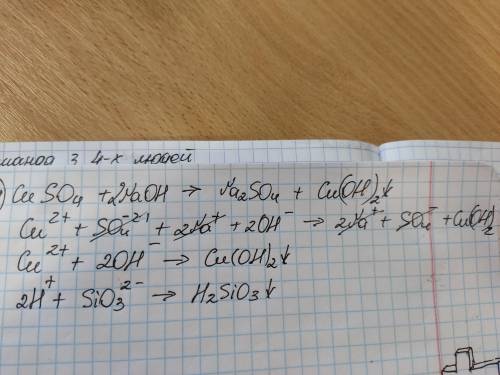 манда 3 4-х людей
) CuSO₄ + 2NaOH → Na₂SO₄ + Cu(OH)₂↓
Cu²⁺ + SO₄²⁻ + 2Na⁺ + 2OH⁻ → 2Na⁺ + SO₄⁻ + Cu(OH)₂
Cu²⁺ + 2OH⁻ → Cu(OH)₂↓
2H⁺ + SiO₃²⁻ → H₂SiO₃↓